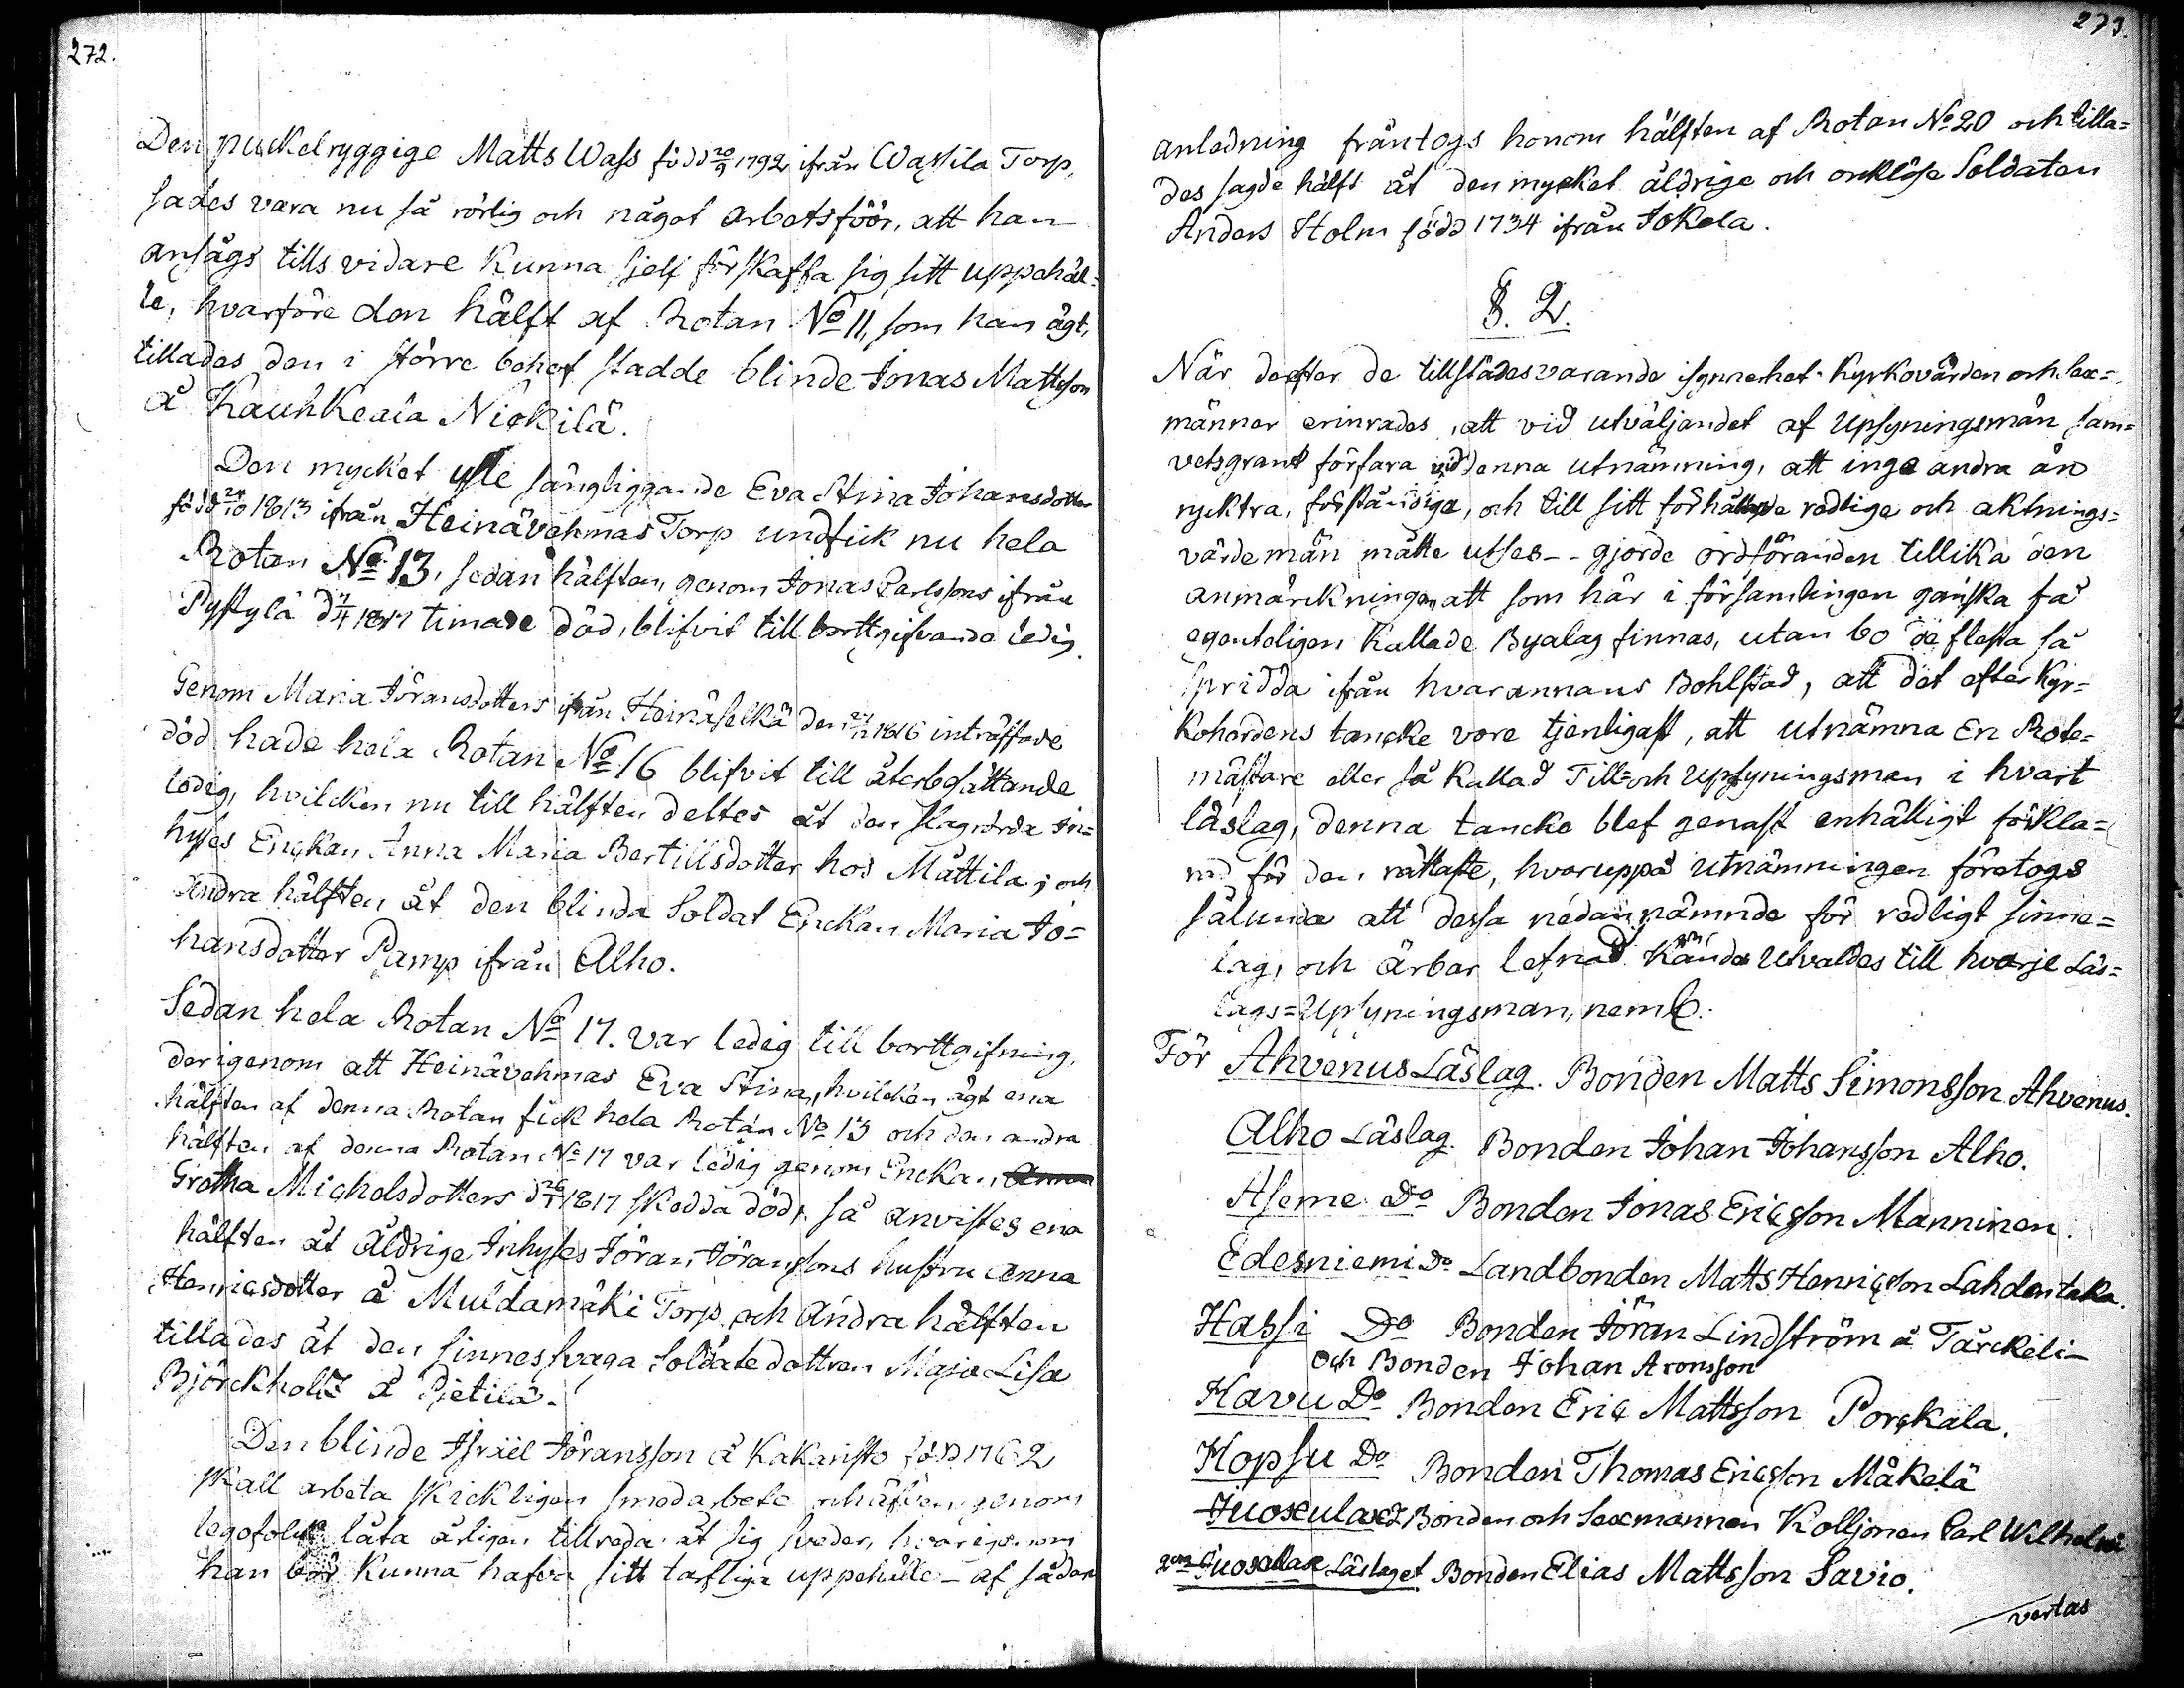 272.
Den puckelryggige Matts Wass född 20/9 1792 ifrån Wassila Torp,
sades vara nu så rörlig och något arbetsföör, att han
ansågs tills vidare kunna sjelf förskaffa sig sitt uppehäl=
le, hvarföre den hälft af Rotan No 11, som han ägt,
tillades den i större behof stadde blinde Jonas Mattsson
å Kauhkeala Nickilä.
Den mycket usle sängliggande Eva Stina Johansdotter
född 24/10 1813 ifrån Heinävehmas Torp undfick nu hela
Rotan No 13, sedan hälften, genom Jonas Carlssons ifrån
Pyssylä timade död, blifvit till bortgifvande ledig.
Genom Maria Göransdotters ifrån Heinäselkä den 1816 inträffade
död hade hela Rotan No 16 blifvit till återbesättande
ledig, hvilcken nu till hälften deltes åt den slagrörda In=
hyses Enckan Anna Maria Bertillsdotter hos Mattila; och
andra hälften åt den blinda Soldat Enckan Maria Jo=
hansdotter Pamp ifrån Alho.
Sedan hela Rotan No 17. var ledig till borttgifning,
derigenom att Heinävehmas Eva Stina, hvilcken ägt ena
hälften af denna Rotan fick hela Rotan No 13 och den andra
hälften af denna Rotan No 17 var ledig genom Enckan Anna
Gretha Michelsdotters d 26/4 1817 skedda död, så anvistes ena
hälften åt åldrige Inhyses Jöran Jöranssons hustru Anna
Henricsdotter å Muldamäki Torp och Andra hälften
tillades åt den sinnessvaga Soldatedottren Maja Lisa
Björckholtz å Pietilä.
Den blinde Israël Jöransson å Kakaristo född 1762
skall arbeta skickligen smedarbete och äfven genom
legofolk låta årligen tillreda åt sig sveder, hvarigenom
han bör kunna hafva sitt tarfliga uppehälle - af sådan
273.
anledning fråntogs honom hälften af Rotan No 20 och tilla=
des sagde hälft åt den mycket åldrige och orklöse Soldaten
Anders Holm född 1734 ifrån Jokela.
§. 2.
När derefter de tillstädesvarande isynnerhet Kyrkovärden och Sex=
männer erinrades, att vid utväljandet af Upsyningsmän sam=
vetsgrant förfara vid denna utnämning, att inga andra än
nycktra, förståndiga, och till sitt förhållande redlige och aktnings=
värde män måtte utses -- gjorde ordföranden tillika den
anmärckningen att som här i församlingen ganska få
egenteligen kallade Byalag finnas, utan bo de flesta så
spridda ifrån hvarannans Bohlstad, att det efter Kyr=
koherdens tancke vore tjenligast, att utnämna En Rote=
mästare eller så kallad Till- och Upsyningsman i hvart
läslag, denna tancke blef genast enhälligt förkla=
rad för den rättaste, hvaruppå utnämningen företogs
sålunda att dessa nedannämnde för redligt sinne=
lag, och ärbar lefnad kända Utvaldes till hvarje Läs=
lags=Upsyningsman, neml.
För Ahvenus Läslag. Bonden Matts Simonsson Ahvenus.
Alho Läslag. Bonden Johan Johansson Alho.
Aseme Do Bonden Jonas Ericsson Manninen.
Edesniemi Do Landbonden Matts Henricsson Lahdentaka.
Hassi Do Bonden Jöran Lindström å Tärckeli-
och Bonden Johan Aronsson
Havu Do Bonden Eric Mattsson Porckala.
Hopsu Do Bonden Thomas Ericsson Mäkelä
Juoxulax Bonden och Sexmannen Kolljonen Carl Wilhelm
2dra Juoxulax Läslaget Bonden Elias Mattsson Savio.
vertas